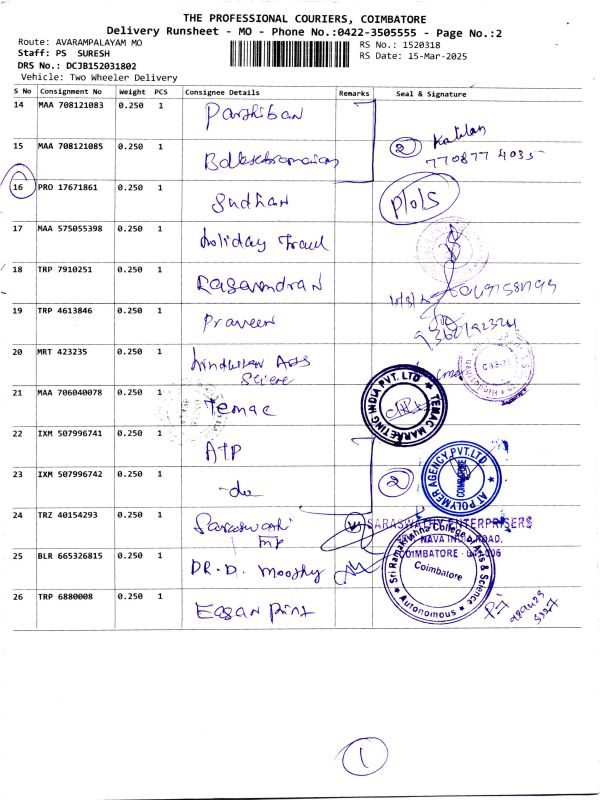 THE PROFESSIONAL COURIERS, COIMBATORE
Delivery Runsheet - MO - Phone No.:0422-3505555 - Page No.:2
Route: AVARAMPALAYAM MO
Staff: PS SURESH
DRS No.: DCJB152031802
Vehicle: Two Wheeler Delivery
RS No.: 1520318
RS Date: 15-Mar-2025
S No Consignment No Weight PCS Consignee Details Remarks Seal & Signature
14 MAA 708121083 0.250 1 Parthiban
15 MAA 708121085 0.250 1 2
16 PRO 17671861 0.250 1 Sudhan
17 MAA 575055398 0.250 1 holiday
18 TRP 7910251 0.250 1
19 TRP 4613846 0.250 1 Praveen
20 MRT 423235 0.250 1
21 MAA 706040078 0.250 1 Temac
TEMAC MARKETING INDIA PVT. LTD
22 IXM 507996741 0.250 1 ATP
23 IXM 507996742 0.250 1 -do 2
AT POLYMER AGENCY PVT.LTD
COIMBATORE
24 TRZ 40154293 0.250 1 Saraswathi
SARASWATHY ENTERPRISERS
25 BLR 665326815 0.250 1 DR. D. Moorthy
Sri Ramakrishna College of Arts & Science
Coimbatore
Autonomous
26 TRP 6880008 0.250 1 Eagan Print
1